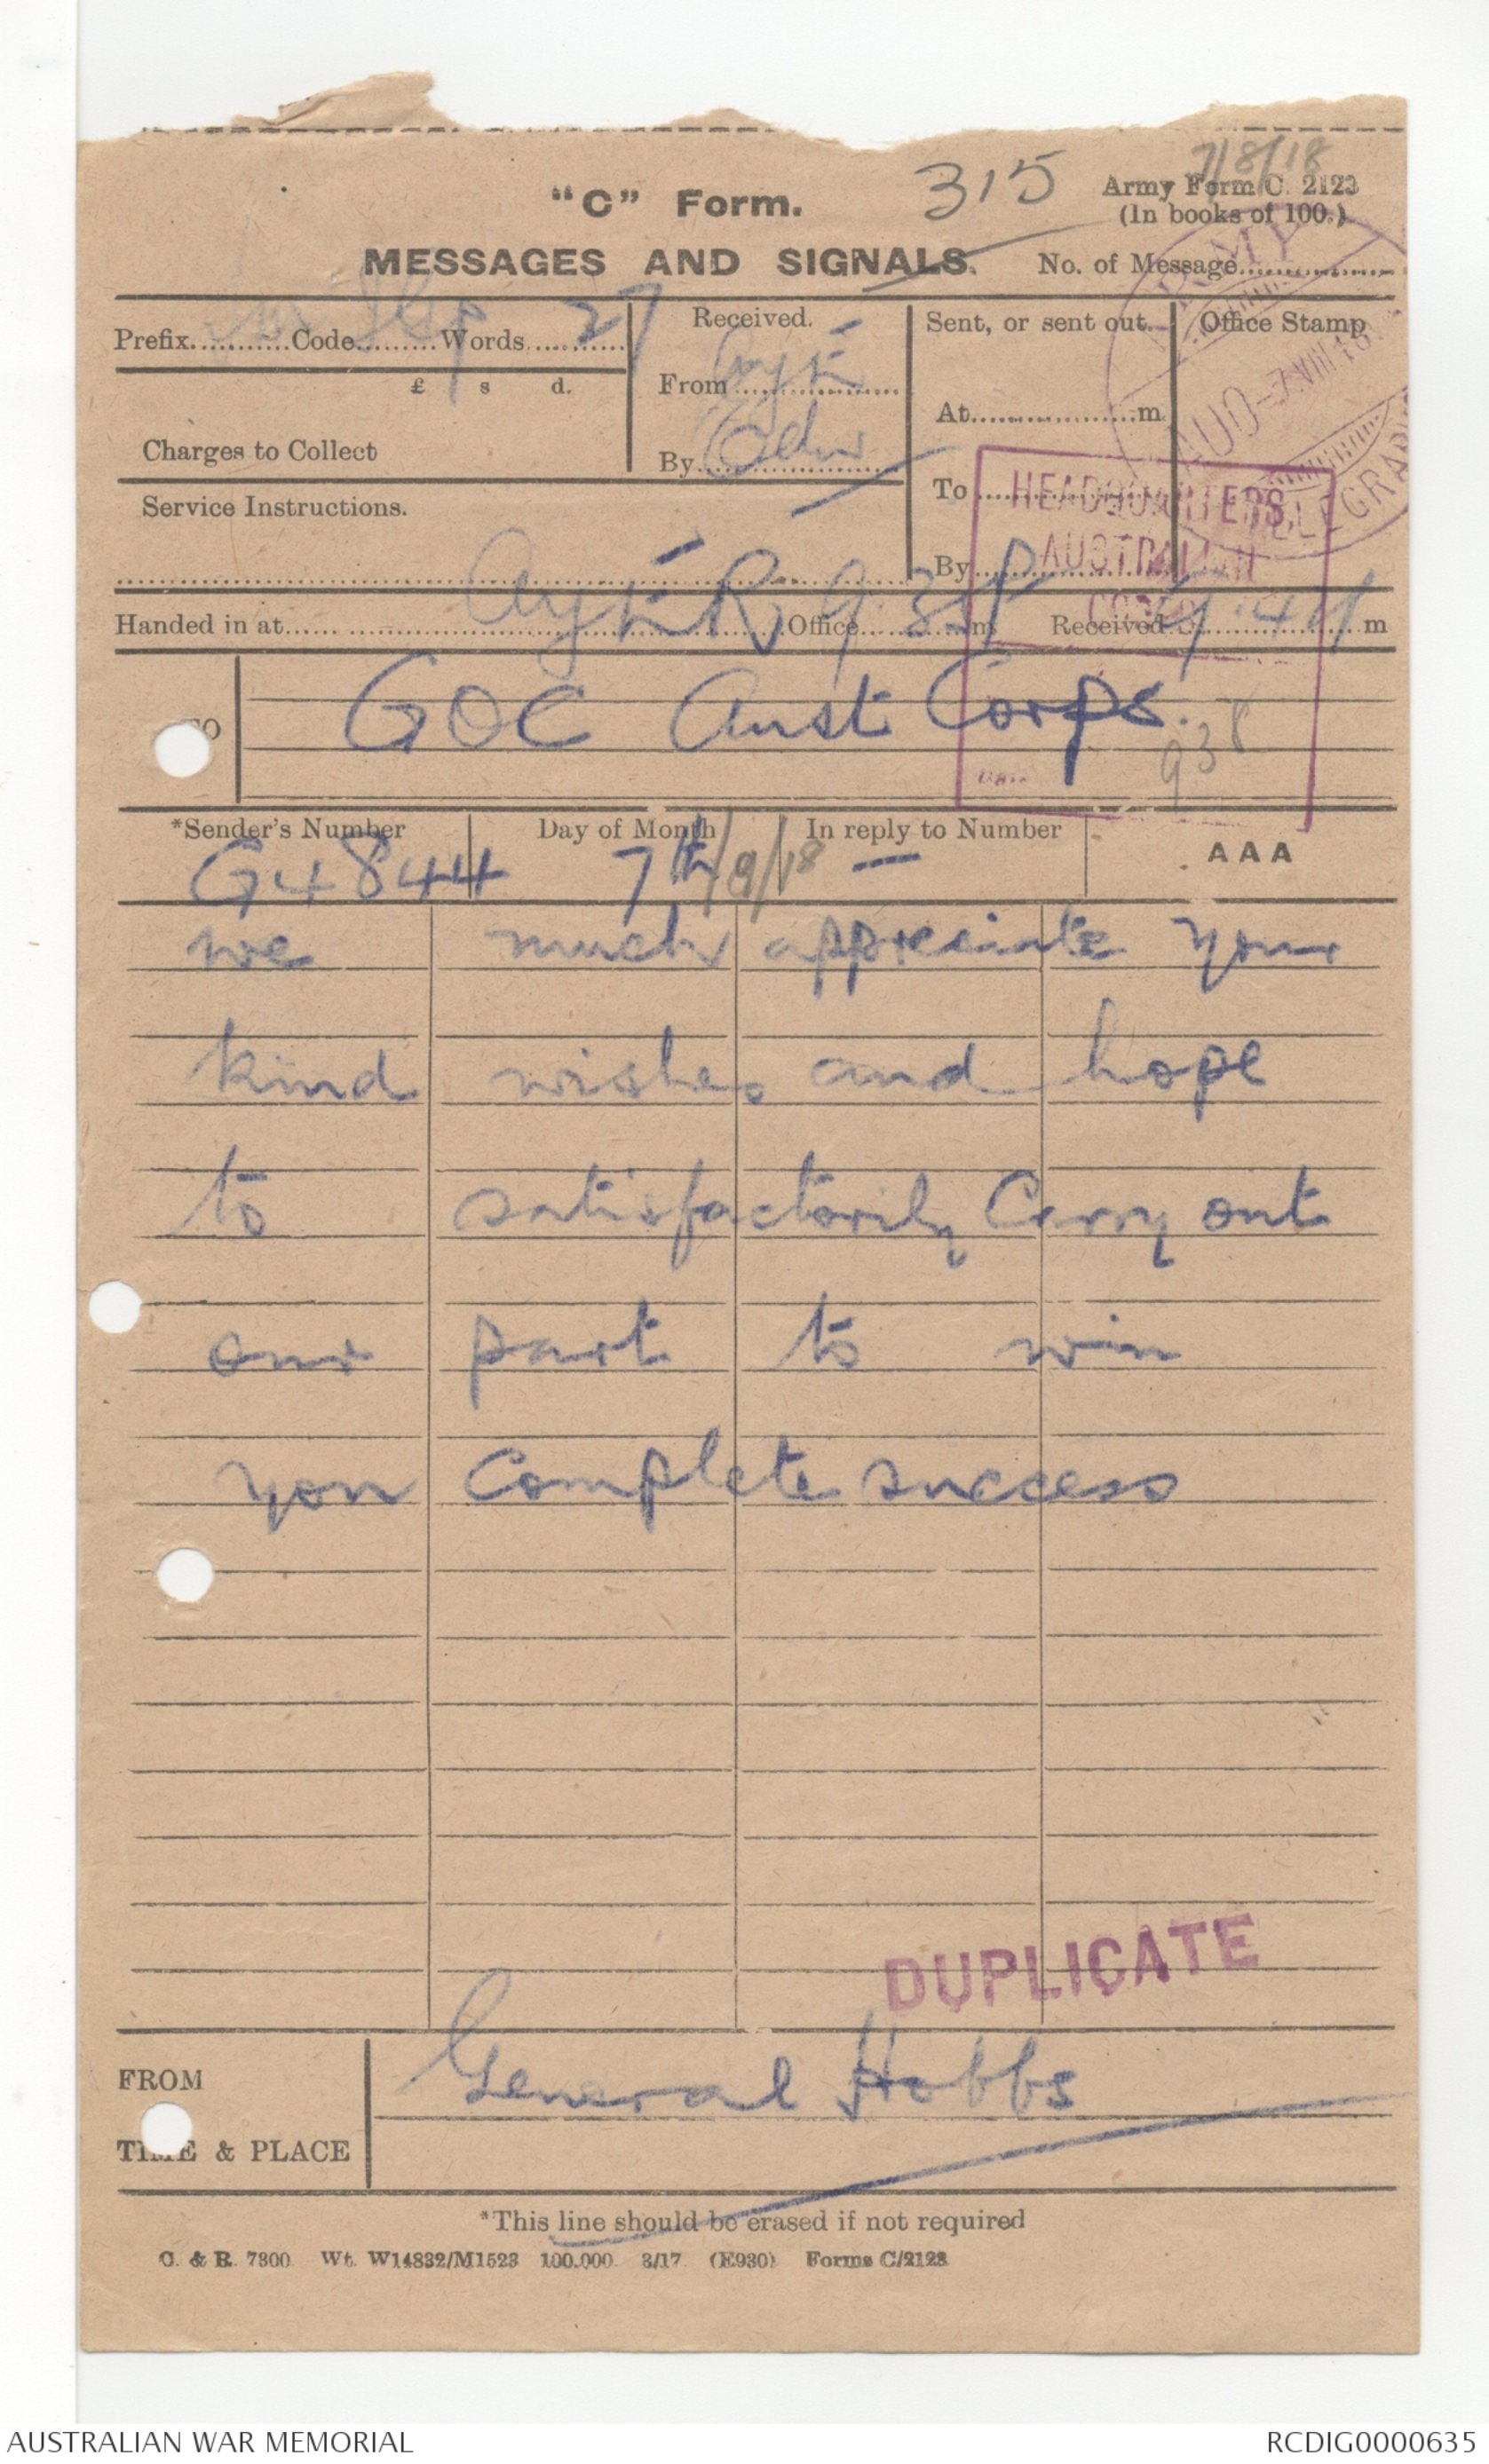 7/8/18
"C" Form. 315 Army Form C. 2123
(In books of 100.)
MESSAGES AND SIGNALS. No. of Message
Prefix Code Words 27
£ s d.
Charges to Collect
Received.
From
By
Sent, or sent out.
At m
To
By
Office Stamp
ARMY TELEGRAPH
7.VIII.18
HEADQUARTERS,
AUSTRALIAN
CORPS
DATE
Service Instructions.
Handed in at Office m Received m
TO GOC Aust Corps.
938
*Sender's Number Day of Month In reply to Number AAA
G4844 7th/8/18 —
we much appreciate your
kind wishes and hope
to satisfactorily Carry out
our part to win
you complete success
DUPLICATE
FROM General Hobbs
TIME & PLACE
*This line should be erased if not required
C. & R. 7300 Wt. W14832/M1523 100,000 3/17 (E930) Forms C/2123
AUSTRALIAN WAR MEMORIAL RCDIG0000635